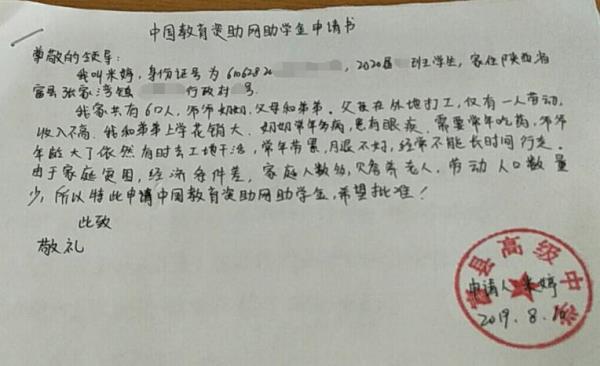 中国教育资助网助学金申请书
尊敬的领导:
我叫米婷,身份证号为6106282,2020届 班学生,家住陕西省
富县张家湾镇 行政村 号。
我家共有6口人,爷爷奶奶,父母和弟弟。父亲在外地打工,仅有一人劳动,
收入不高,我和弟弟上学花销大,奶奶常年多病,患有眼疾,需要常年吃药,爷爷
年龄大了依然有时去工地干活,常年劳累,月退不好,经常不能长时间行走。
由于家庭困,经济条件差,家庭人数多,又有养老人,劳动人口数量
少,所以特此申请中国教育资助网助学金,希望批准!
此致
敬礼
富县高级中学
申请人:米婷
2019.8.10